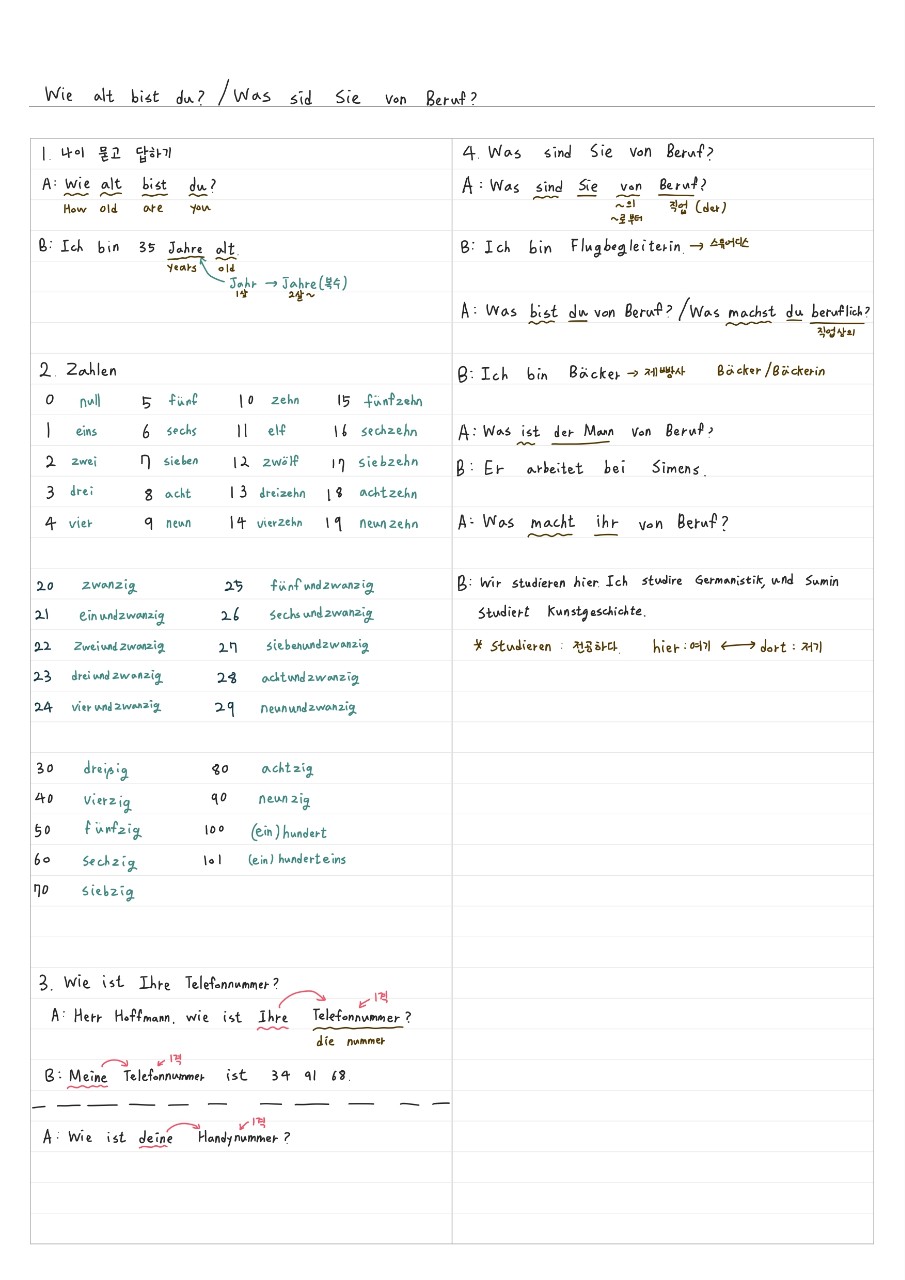 Wie alt bist du? / Was sid Sie von Beruf?
1. 나이 묻고 답하기
A: Wie alt bist du?
How old are you
B: Ich bin 35 Jahre alt.
years old
Jahr → Jahre(복수)
1살 2살~
2. Zahlen
0 null 5 fünf 10 zehn 15 fünfzehn
1 eins 6 sechs 11 elf 16 sechzehn
2 zwei 7 sieben 12 zwölf 17 siebzehn
3 drei 8 acht 13 dreizehn 18 achtzehn
4 vier 9 neun 14 vierzehn 19 neunzehn
20 zwanzig 25 fünfundzwanzig
21 einundzwanzig 26 sechsundzwanzig
22 Zweiundzwanzig 27 siebenundzwanzig
23 dreiundzwanzig 28 achtundzwanzig
24 vierundzwanzig 29 neunundzwanzig
30 dreißig 80 achtzig
40 vierzig 90 neunzig
50 fünfzig 100 (ein)hundert
60 sechzig 101 (ein)hunderteins
70 siebzig
3. Wie ist Ihre Telefonnummer?
1격
A: Herr Hoffmann, wie ist Ihre Telefonnummer?
die nummer
1격
B: Meine Telefonnummer ist 34 91 68.
1격
A: Wie ist deine Handynummer?
4. Was sind Sie von Beruf?
A: Was sind Sie von Beruf?
~의 직업 (der)
~로부터
B: Ich bin Flugbegleiterin. → 스튜어디스
A: Was bist du von Beruf? / Was machst du beruflich?
직업상의
B: Ich bin Bäcker → 제빵사 Bäcker/Bäckerin
A: Was ist der Mann von Beruf?
B: Er arbeitet bei Simens.
A: Was macht ihr von Beruf?
B: Wir studieren hier. Ich studire Germanistik, und Sumin
studiert Kunstgeschichte.
* Studieren : 전공하다. hier : 여기 ↔ dort : 저기